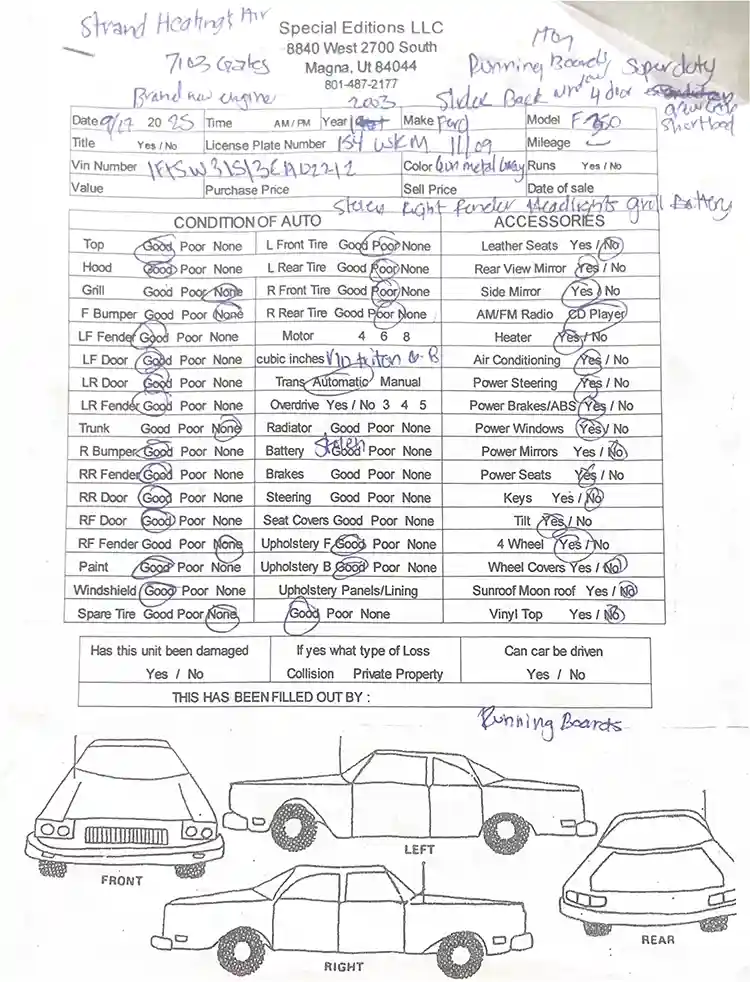 Strand Heating & Air
Special Editions LLC
8840 West 2700 South
7103 Gates
Magna, Ut 84044
Running Boards Superduty
801-487-2177
Brand new engine
2003
Slider Back window 4 door
Date 9/17 2025 Time AM/PM Year Make Ford Model F350
Title Yes / No License Plate Number 154 WSKM 11/09 Mileage
Vin Number Color Gun metal Gray Runs Yes / No
Value Purchase Price Sell Price Date of sale
Stolen Right Fender Headlights grill Battery
CONDITION OF AUTO ACCESSORIES
Top Good Poor None L Front Tire Good Poor None Leather Seats Yes / No
Hood Good Poor None L Rear Tire Good Poor None Rear View Mirror Yes / No
Grill Good Poor None R Front Tire Good Poor None Side Mirror Yes / No
F Bumper Good Poor None R Rear Tire Good Poor None AM/FM Radio CD Player
LF Fender Good Poor None Motor 4 6 8 Heater Yes / No
LF Door Good Poor None cubic inches Air Conditioning Yes / No
LR Door Good Poor None Trans Automatic Manual Power Steering Yes / No
LR Fender Good Poor None Overdrive Yes / No 3 4 5 Power Brakes/ABS Yes / No
Trunk Good Poor None Radiator Good Poor None Power Windows Yes / No
R Bumper Good Poor None Battery Stolen Good Poor None Power Mirrors Yes / No
RR Fender Good Poor None Brakes Good Poor None Power Seats Yes / No
RR Door Good Poor None Steering Good Poor None Keys Yes / No
RF Door Good Poor None Seat Covers Good Poor None Tilt Yes / No
RF Fender Good Poor None Upholstery F Good Poor None 4 Wheel Yes / No
Paint Good Poor None Upholstery B Good Poor None Wheel Covers Yes / No
Windshield Good Poor None Upholstery Panels/Lining Sunroof Moon roof Yes / No
Spare Tire Good Poor None Good Poor None Vinyl Top Yes / No
Has this unit been damaged If yes what type of Loss Can car be driven
Yes / No Collision Private Property Yes / No
THIS HAS BEEN FILLED OUT BY :
Running Boards
LEFT
FRONT
REAR
RIGHT